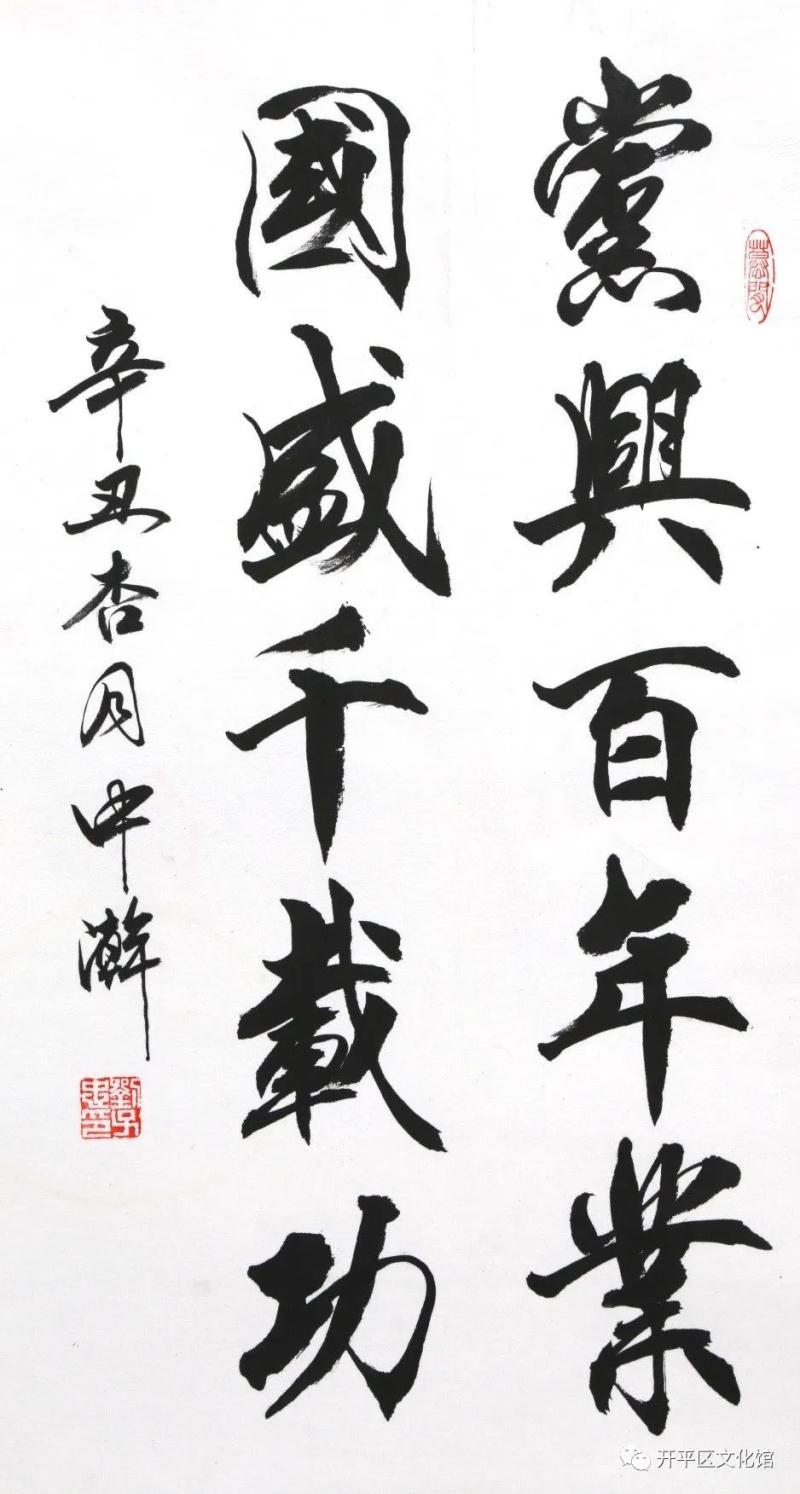 黨興百年業
國盛千載功
辛丑杏月中瀚
开平区文化馆